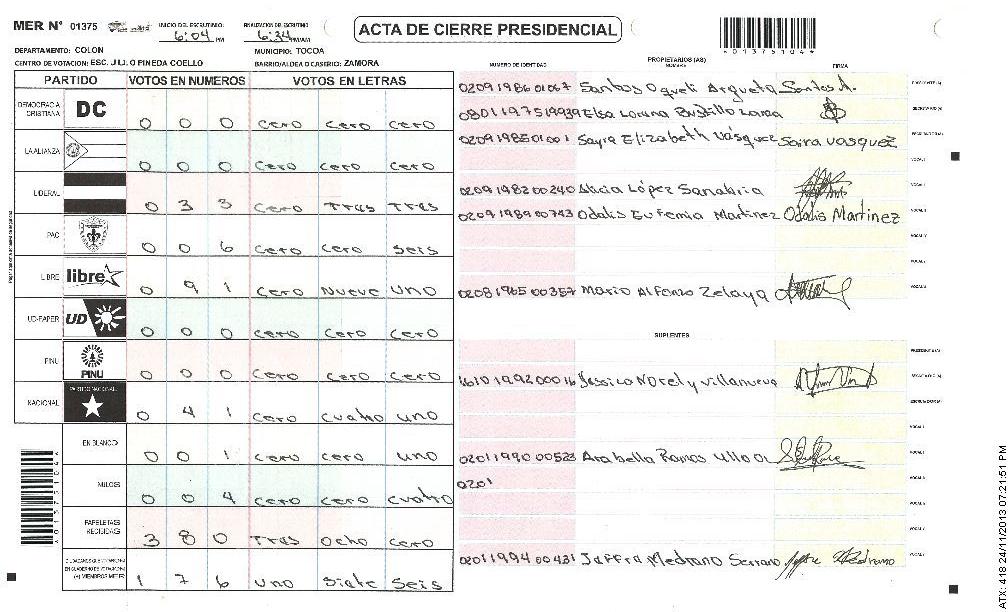 MER N° 01375 INICIO DEL ESCRUTINIO 6:04 PM FINALIZACION DEL ESCRUTINIO 6:34 PM/AM ACTA DE CIERRE PRESIDENCIAL
DEPARTAMENTO: COLON MUNICIPIO: TOCOA
CENTRO DE VOTACION: ESC. JULIO PINEDA COELLO BARRIO/ALDEA O CASERIO: ZAMORA
PARTIDO VOTOS EN NUMEROS VOTOS EN LETRAS
DEMOCRACIA CRISTIANA DC 0 0 0 cero cero cero
LA ALIANZA 0 0 0 cero cero cero
LIBERAL 0 3 3 cero Tres Tres
PAC 0 0 6 cero cero seis
LIBRE libre 0 9 1 cero Nueve uno
UD-FAPER UD 0 0 0 cero cero cero
PINU PINU 0 0 0 cero cero cero
NACIONAL PARTIDO NACIONAL 0 4 1 cero cuatro uno
EN BLANCO 0 0 1 cero cero uno
NULOS 0 0 4 cero cero cuatro
PAPELETAS RECIBIDAS 3 8 0 Tres ocho cero
1 7 6 uno siete seis
NUMERO DE IDENTIDAD PROPIETARIOS (AS) NOMBRE FIRMA
0209 1986 01067 Santos Oqueli Argueta Santos A. PRESIDENTE (A)
0801 1975 19939 Elsa Lorena Bustillo Zarea SECRETARIO (A)
0209 1985 01001 Sayra Elizabeth Vásquez Saira vasquez ESCRUTADOR (A)
VOCAL I
0209 1982 00240 Alicia López Sanabria
0209 1989 00743 Odalis Eufemia Martinez Odalis Martinez
0208 1965 00357 Mario Alfonzo Zelaya
SUPLENTES
PRESIDENTE (A)
1992 00016 Jessica Norely villanueva SECRETARIO (A)
ESCRUTADOR (A)
0201 1990 00523 Arabella Ramos Ulloa
0201
0201 1994 00431 Medrano Serrano
A01375104
ATX: 418 24/11/2013 07:21:51 PM